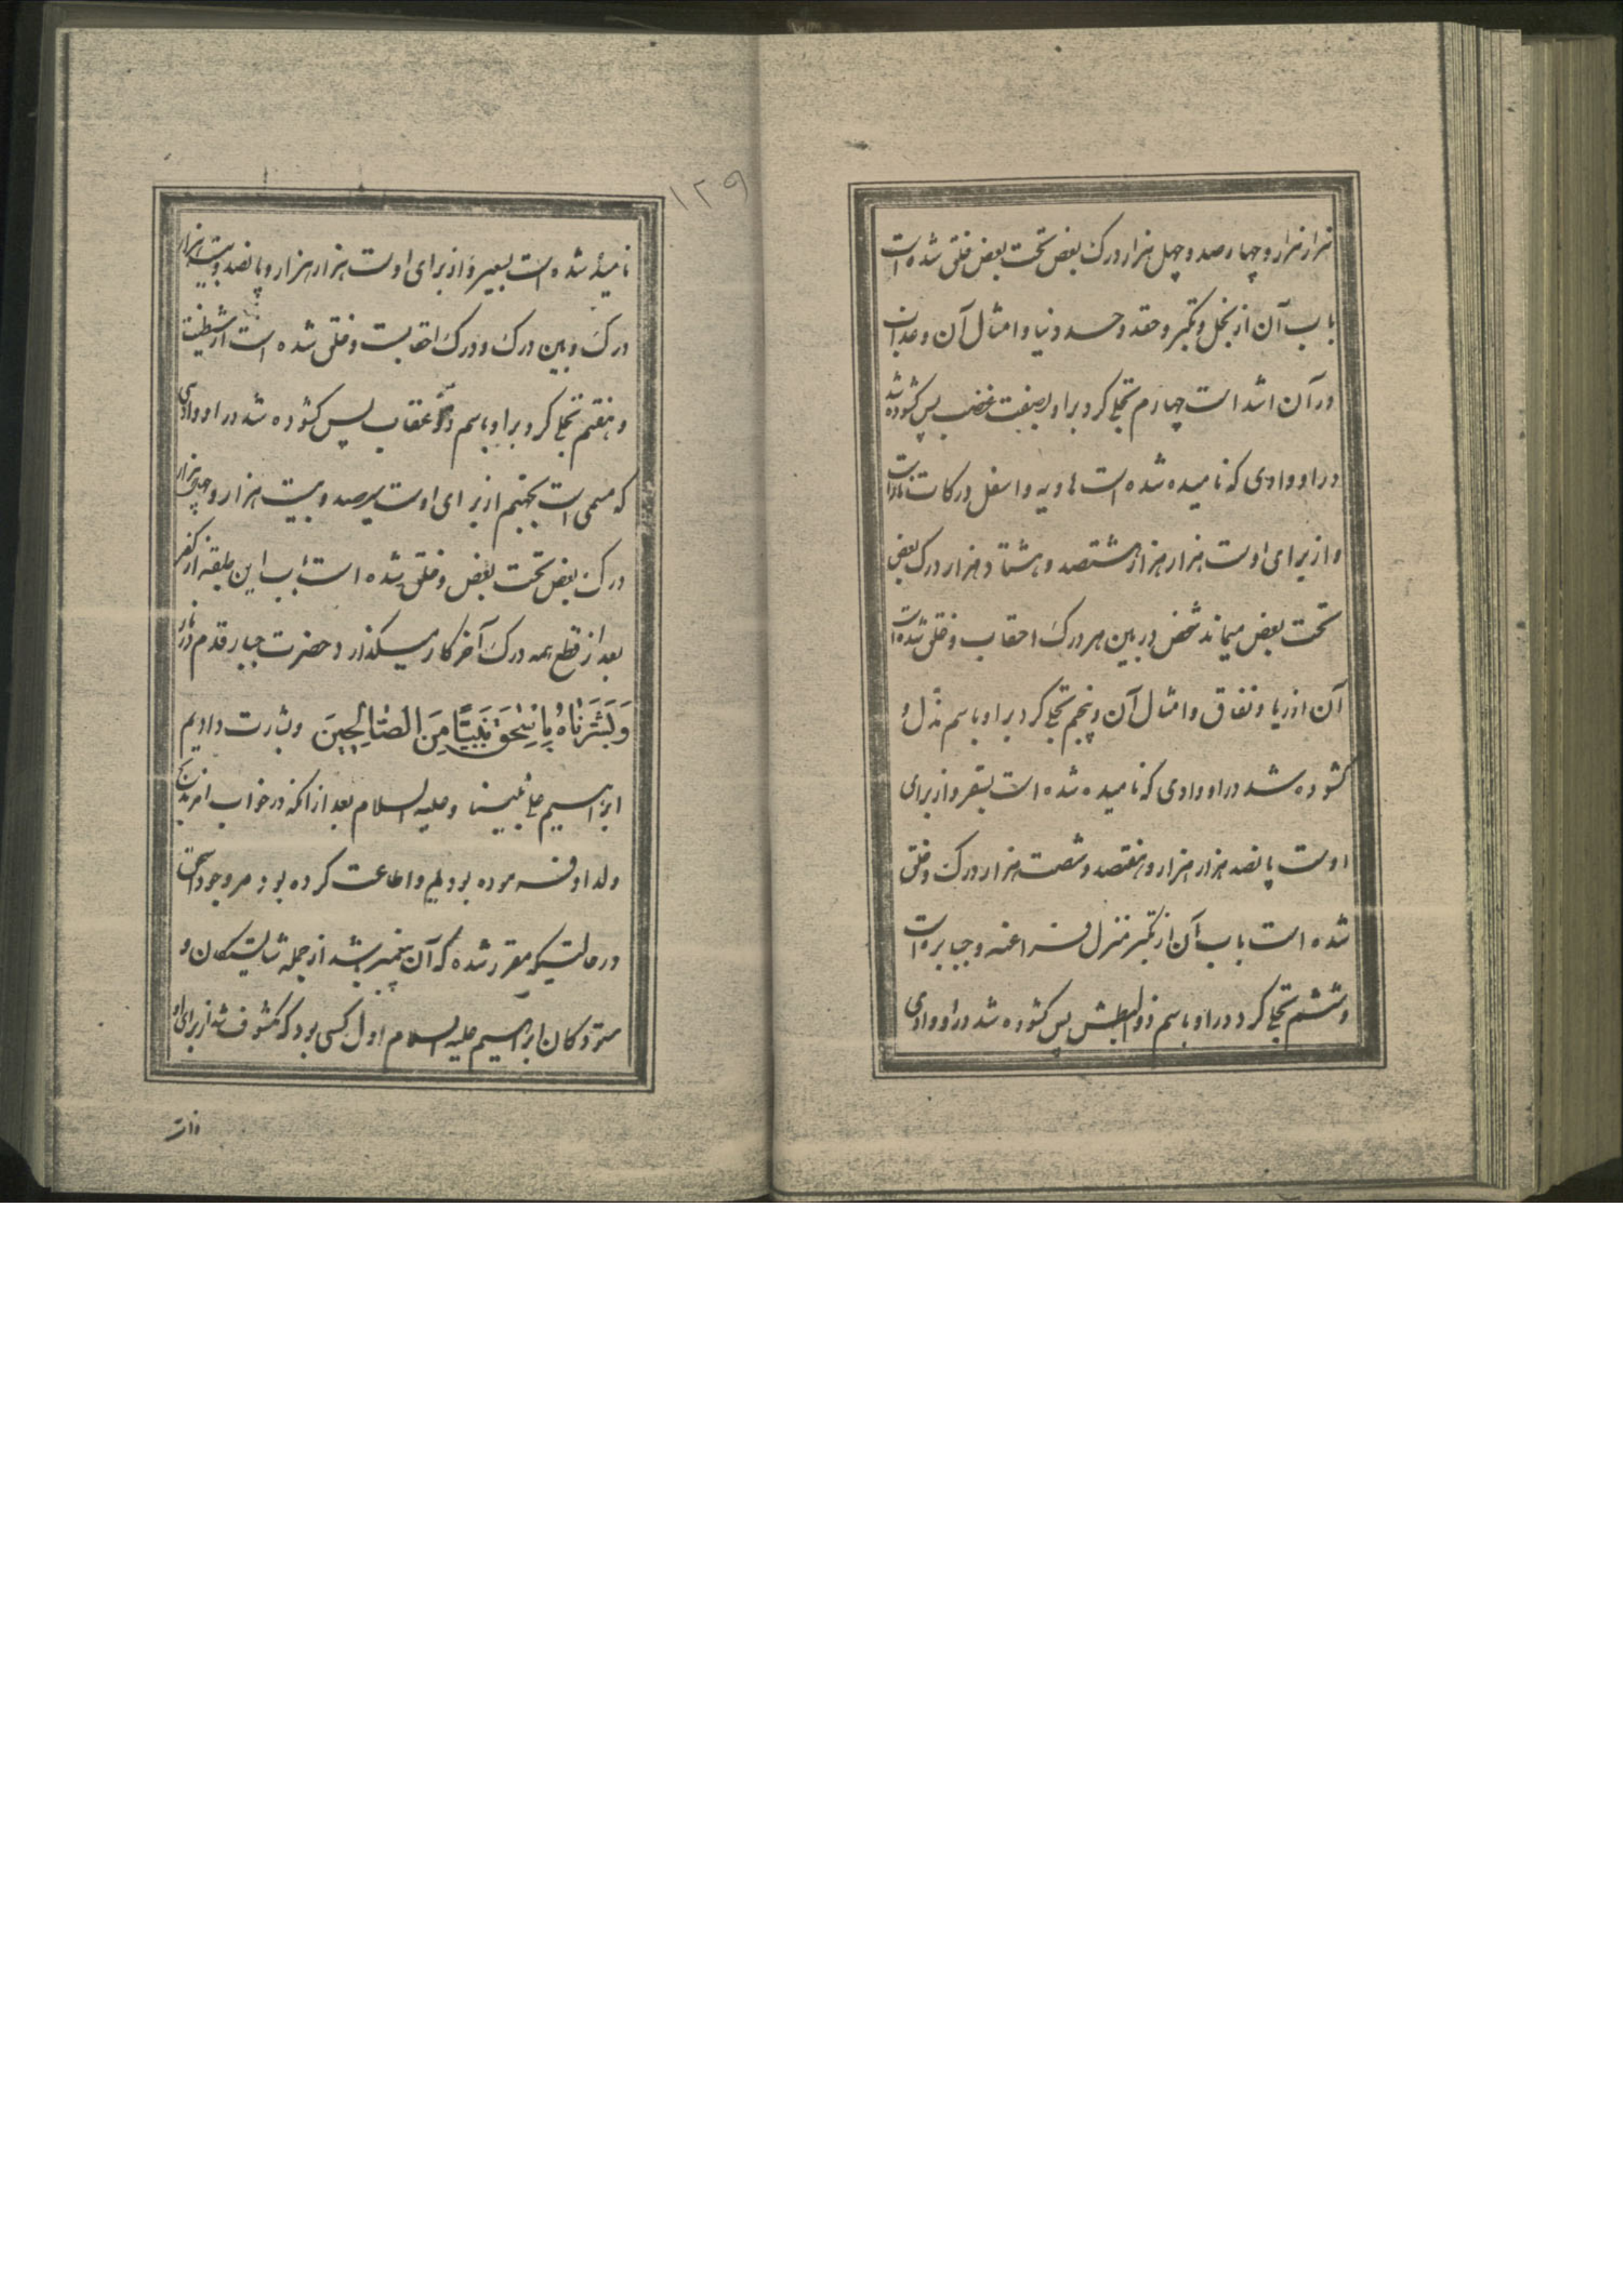 هزار هزار و چهار صد و چهل هزار درک بعض تحت بعض خلق شده است
باب آن از بخل و تکبر و حقد و حسد و دنیا و امثال آن و عذاب
در آن اشد است چهارم تجلی کرد بر او بصفت غضب پس کشوده شد
در او وادی که نامیده شده است هاویه و اسفل درکات نار است
و از برای اوست هزار هزار و هشتصد و هشتاد هزار درک بعض
تحت بعض میماند شخص در بین هر درک احقاب و خلق شده است
آن از ریا و نفاق و امثال آن و پنجم تجلی کرد بر او باسم مذل و
کشوده شد در او وادی که نامیده شده است بسقر و از برای
اوست پانصد هزار هزار و هفتصد و شصت هزار درک و خلق
شده است باب آن از تکبر منزل فراعنه و جبابره است
و ششم تجلی کرد در او باسم ذو البطش پس کشوده شد در او وادی
۱۲۹
نامیده شده است بسعیر و از برای اوست هزار هزار و پانصد و بیست هزار
درک و بین درک و درک احقابست و خلق شده است از شیطنت
و هفتم تجلی کرد بر او باسم ذو عقاب پس کشوده شد در او وادی
که مسمی است بجهنم از برای اوست سیصد و بیست هزار و چهل هزار
درک بعض تحت بعض و خلق شده است باب این طبقه از کفر
بعد از قطع همه درک آخر کار میگذارد حضرت جبار قدم در نار
وَبَشَّرْنَاهُ بِإِسْحَقَ نَبِيًّا مِنَ الصَّالِحِينَ و بشارت دادیم
ابراهیم علی نبینا و علیه السلام بعد از آنکه در خواب امر بذبح
ولد او فرموده بودیم و اطاعت کرده بود مر وجود اسحق
در حالتیکه مقرر شده که آن پیغمبر باشد از جمله شایستگان و
ستودکان ابراهیم علیه السلام اول کسی بود که مکشوف شد از برای او
ذات